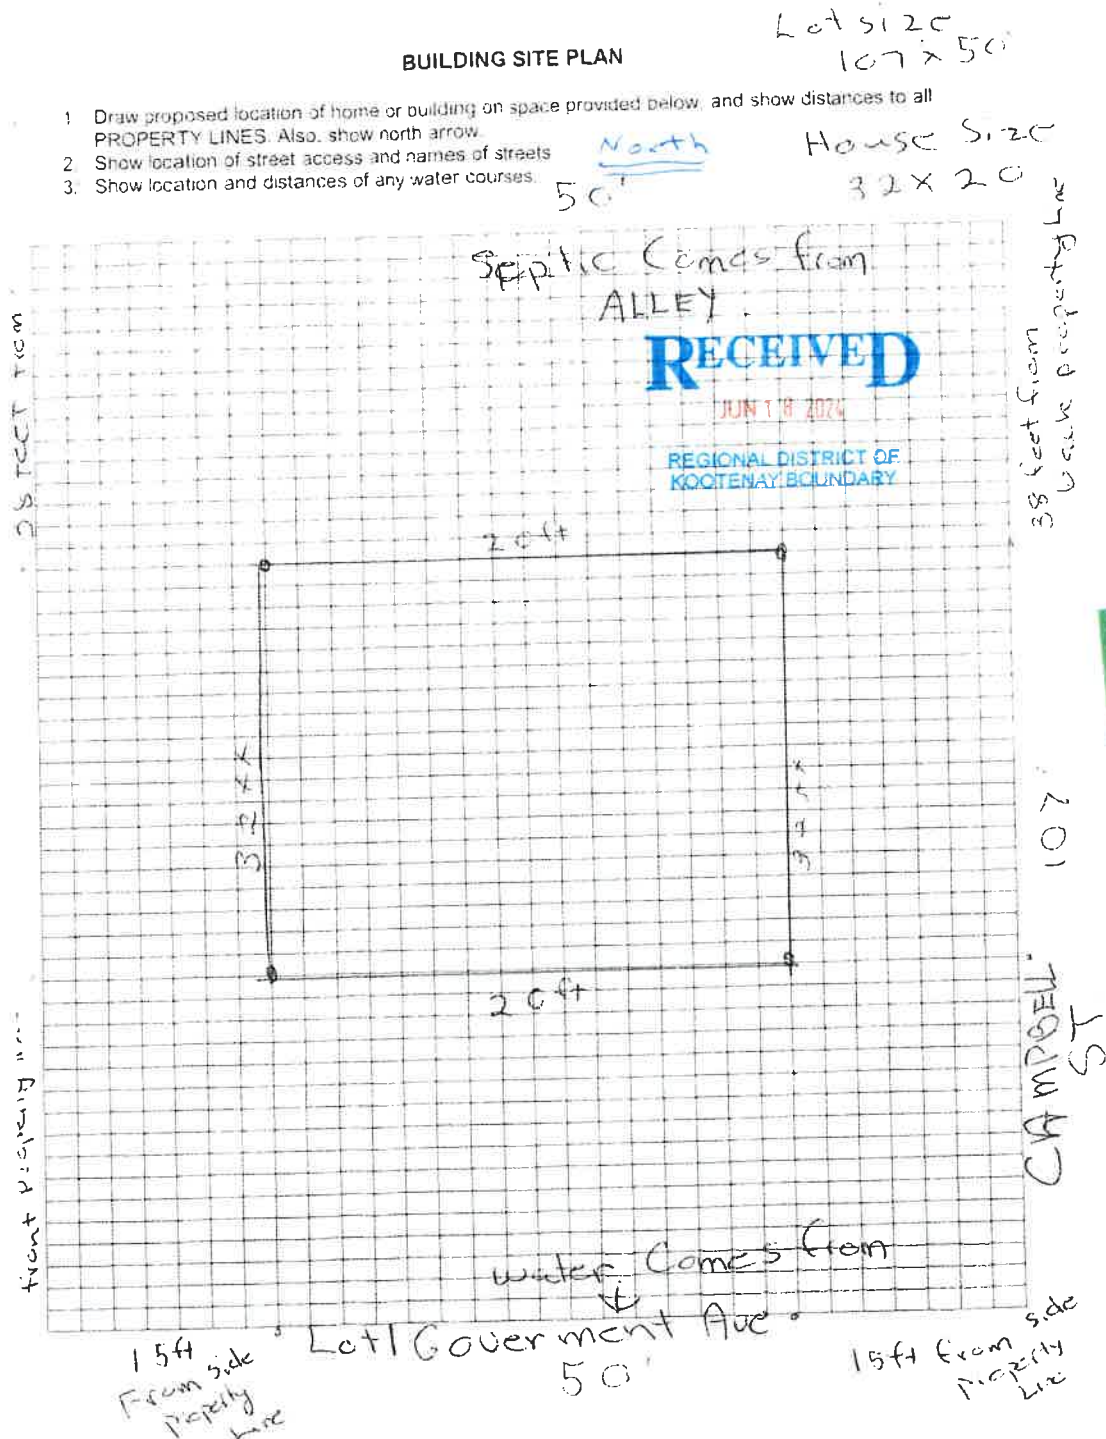 Lot size
107 x 50'
BUILDING SITE PLAN
1 Draw proposed location of home or building on space provided below, and show distances to all
PROPERTY LINES. Also, show north arrow.
2. Show location of street access and names of streets
3. Show location and distances of any water courses.
North
House Size
32 x 20
50'
Septic Comes from
ALLEY.
RECEIVED
JUN 18 2024
REGIONAL DISTRICT OF
KOOTENAY BOUNDARY
38 feet from
back property line
feet from
20 ft
32
32
20 ft
107
CAMPBELL
ST
front property
water Comes from
Lot 1 Goverment Ave
50'
15 ft
From side
property
line
15 ft from side
property
line